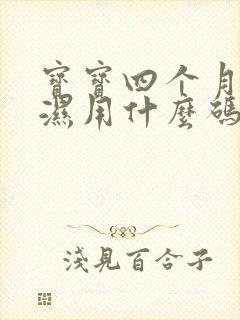 寳寳四个月
濕用什麼碼
淺見百合子